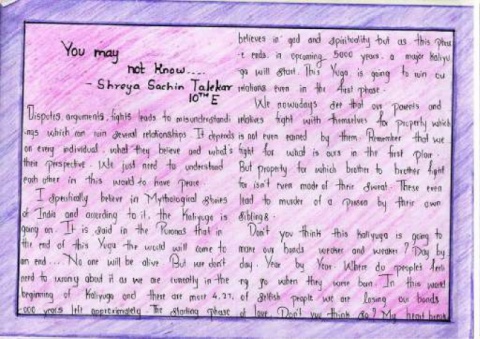 You may
not Know....
- Shreya Sachin Talekar
10TH E
Disputes, arguments, fights leads to misunderstandi
ings which can ruin several relationships. It depends
on every individual, what they believe and what's
their perspective. We just need to understand
each other in this world to have peace.
I specifically believe in Mythological stories
of India and according to it, the Kaliyuga is
going on. It is said in the Puranas that in
the end of this Yuga the world will come to
an end.... No one will be alive. But we don't
need to worry about it as we are currently in the
beginning of Kaliyuga and there are more 4,27,
000 years left approximately. The starting phase
believes in god and spirituality but as this phas
e ends in upcoming 5000 years, a major Kaliyu
ga will start. This Yuga is going to ruin our
relations even in the first phase.
We nowadays see that our parents and
relatives fight with themselves for property which
is not even earned by them. Remember that we
fight for what is ours in the first place.
But property for which brother to brother fight
for isn't even made of their sweat. These even
lead to murder of a person by their own
siblings.
Don't you think this kaliyuga is going to
make our bonds weaker and weaker? Day by
day. Year by Year. Where do people's
go when they were born. In this world
of selfish people we are losing our bonds
of love. Don't you think so? My heart breaks